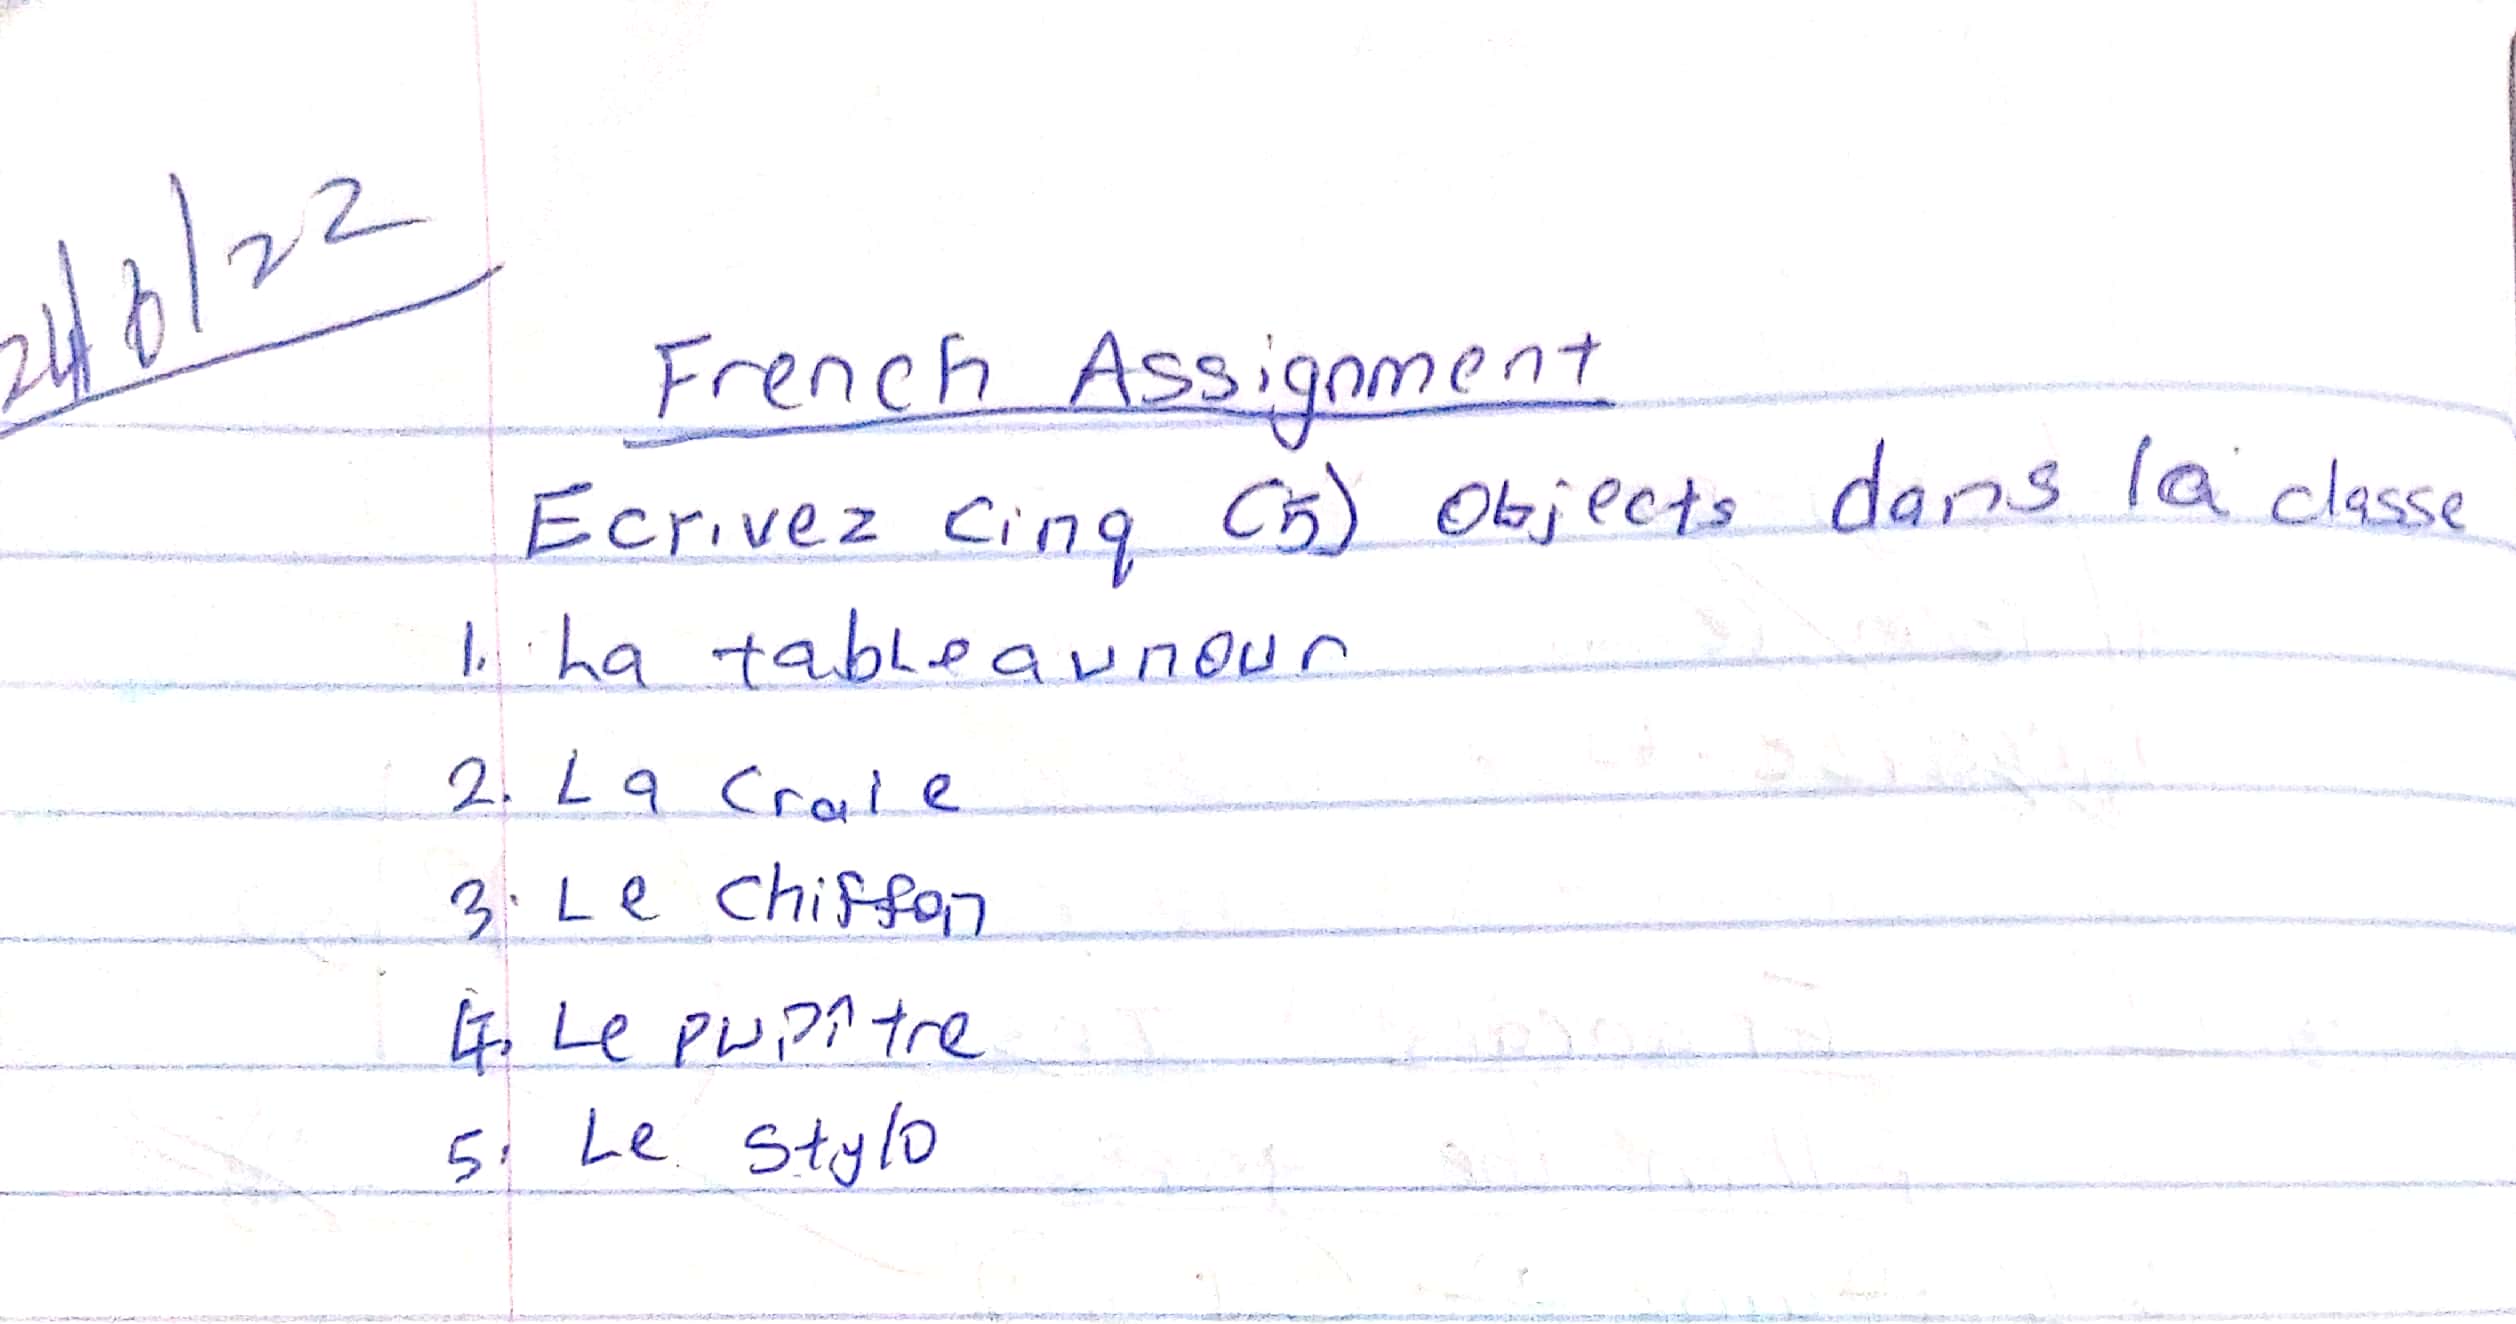 24/8/22
French Assignment
Ecrivez cinq (5) objects dans la classe
1. La tableaunour
2. La craie
3. Le chiffon
4. Le pupître
5. Le stylo